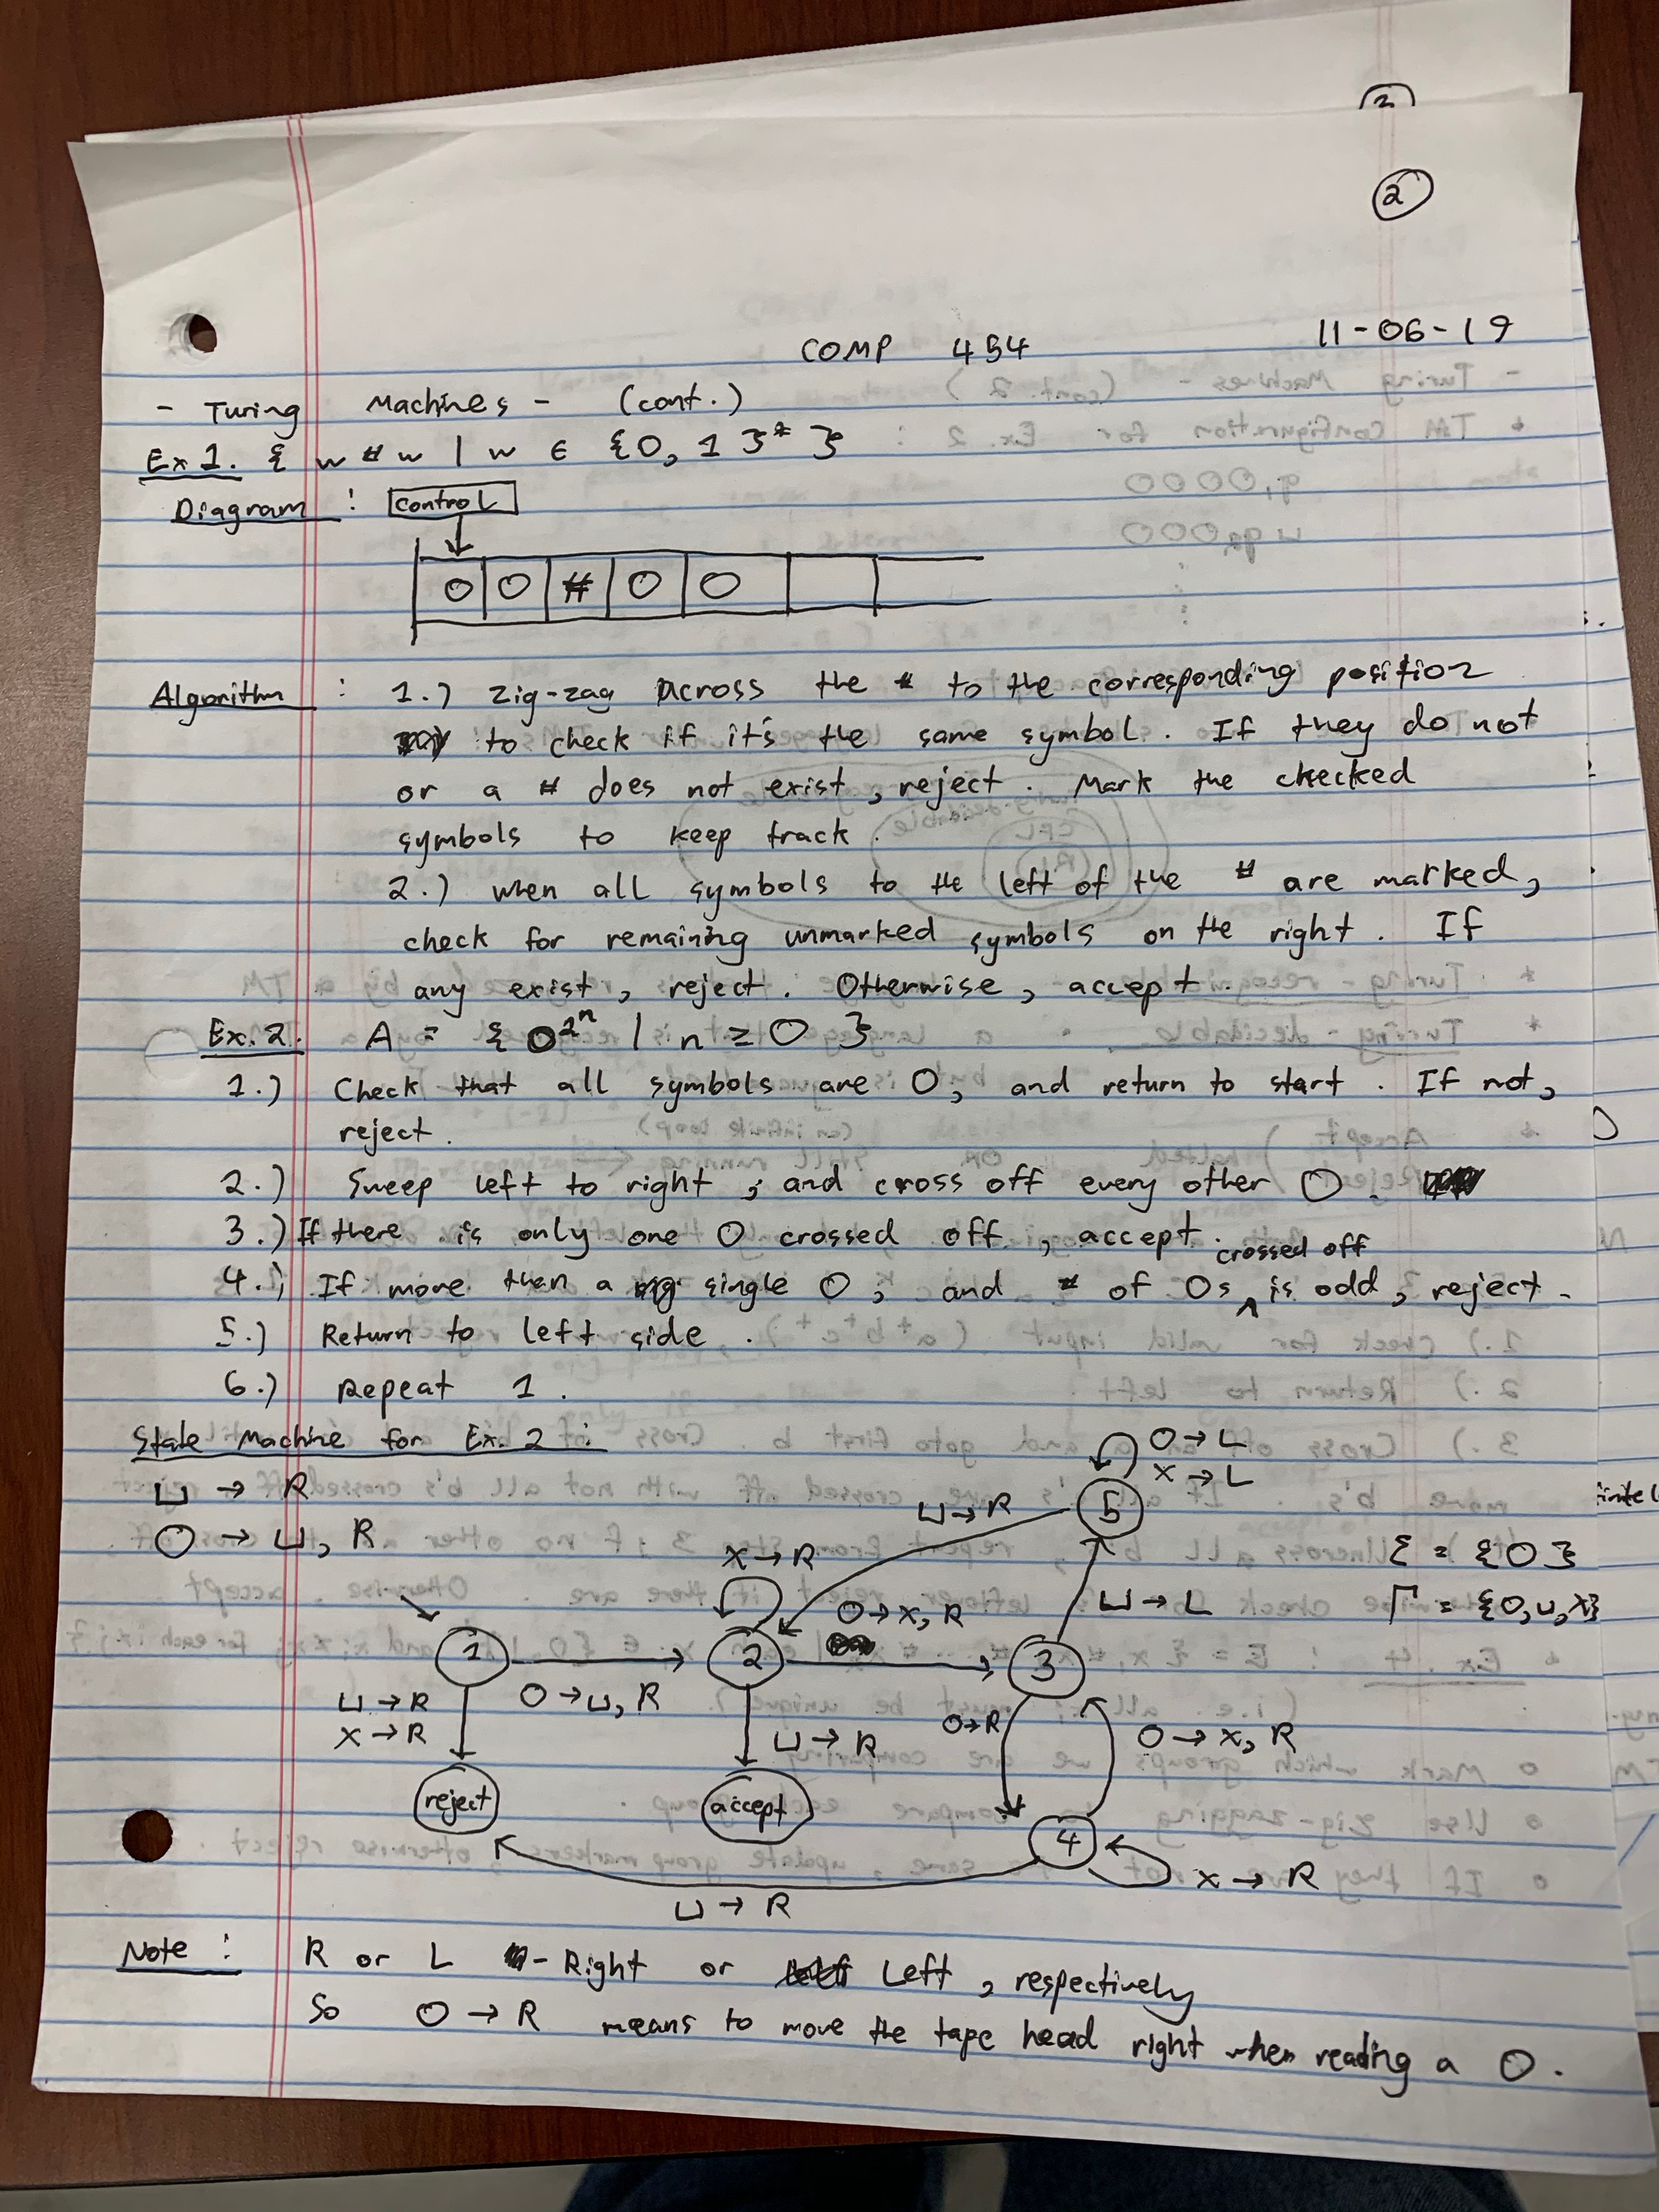 2
2
COMP 454
11-06-19
- Turing Machines - (cont.)
Ex 1. { w # w | w ∈ {0, 1}* }
Diagram : Control
0 0 # 0 0
Algorithm : 1.) zig-zag across the # to the corresponding position
to check if it's the same symbol. If they do not
or a # does not exist, reject. Mark the checked
symbols to keep track.
2.) when all symbols to the left of the # are marked,
check for remaining unmarked symbols on the right. If
any exist, reject. Otherwise, accept.
Ex. 2. A = { 0^2^n | n ≥ 0 }
1.) Check that all symbols are 0, and return to start. If not,
reject.
2.) Sweep left to right, and cross off every other 0.
3.) If there is only one 0 crossed off, accept.
crossed off
4.) If more than a single 0, and # of 0s ^ is odd, reject.
5.) Return to left side.
6.) Repeat 1.
State Machine for Ex. 2 :
⊔ → R
0 → ⊔, R
0 → L
x → L
5
⊔ → R
x → R
0 → x, R
⊔ → L
Σ = {0}
Γ = {0, ⊔, x}
1
2
3
⊔ → R
x → R
0 → ⊔, R
⊔ → R
0 → R
0 → x, R
reject
accept
4
x → R
⊔ → R
Note : R or L - Right or Left, respectively
So 0 → R means to move the tape head right when reading a 0.